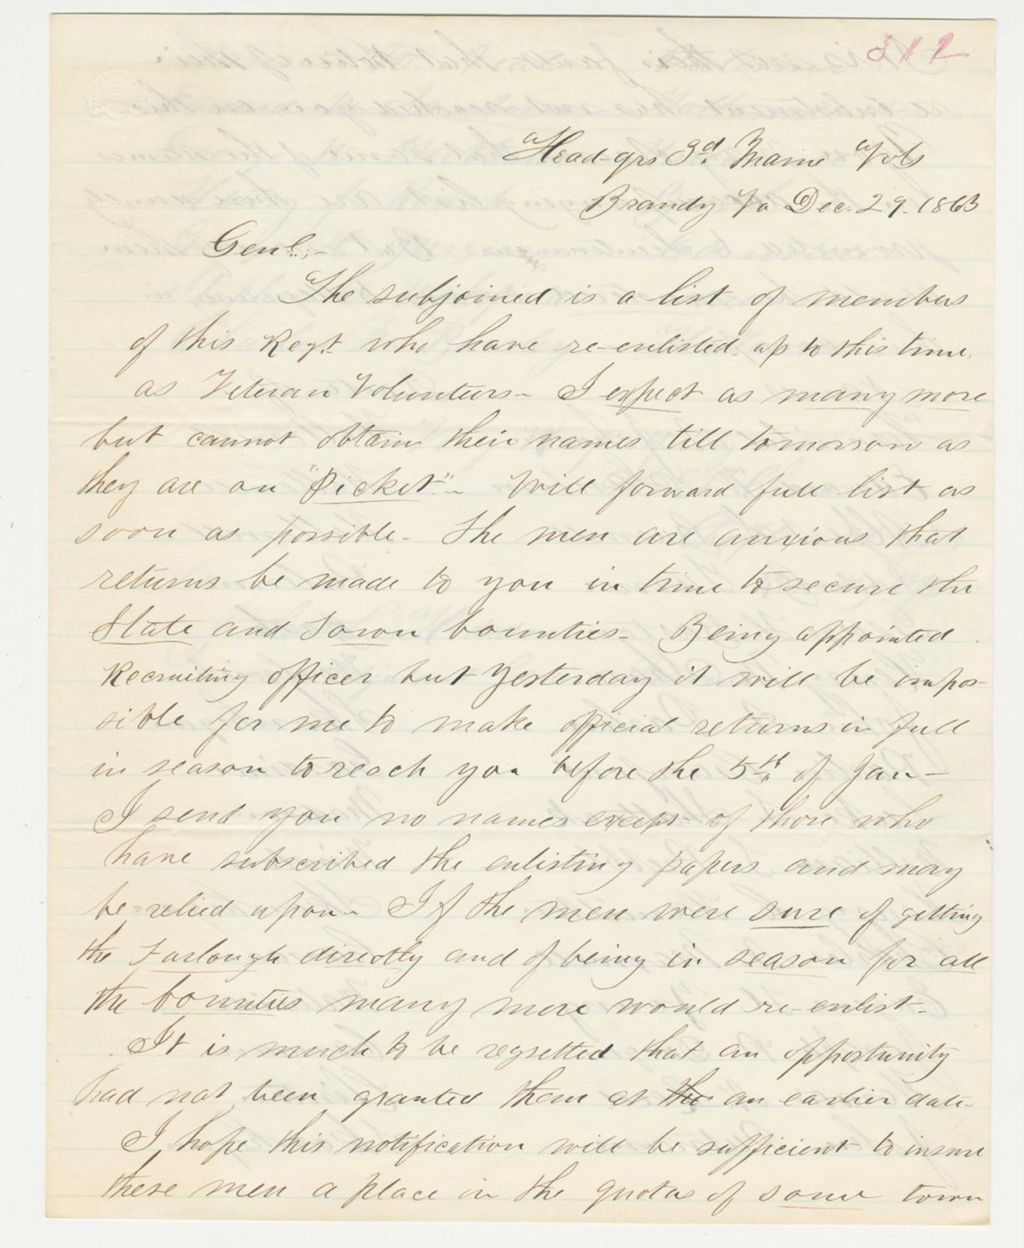 312
Head-qrs 3d. Maine Vols
Brandy Va Dec. 29. 1863
Genl.,-
The subjoined is a list of members
of this Regt. who have re-enlisted up to this time.
as Veteran Volunteers- I expect as many more
but cannot obtain their names till tomorrow as
they are on "Picket"- Will forward full list as
soon as possible- The men are anxious that
returns be made to you in time to secure the
State and Town bounties- Being appointed
Recruiting officer but yesterday it will be impos-
sible for me to make official returns in full
in season to reach you before the 5th of Jan-
I send you no names except of those who
have subscribed the enlisting papers and may
be relied upon- If the men were sure of getting
the Furlough directly and of being in season for all
the bounties many more would re-enlist-
It is much to be regretted that an opportunity
had not been granted them at the an earlier date-
I hope this notification will be sufficient to insure
these men a place in the quotas of some town